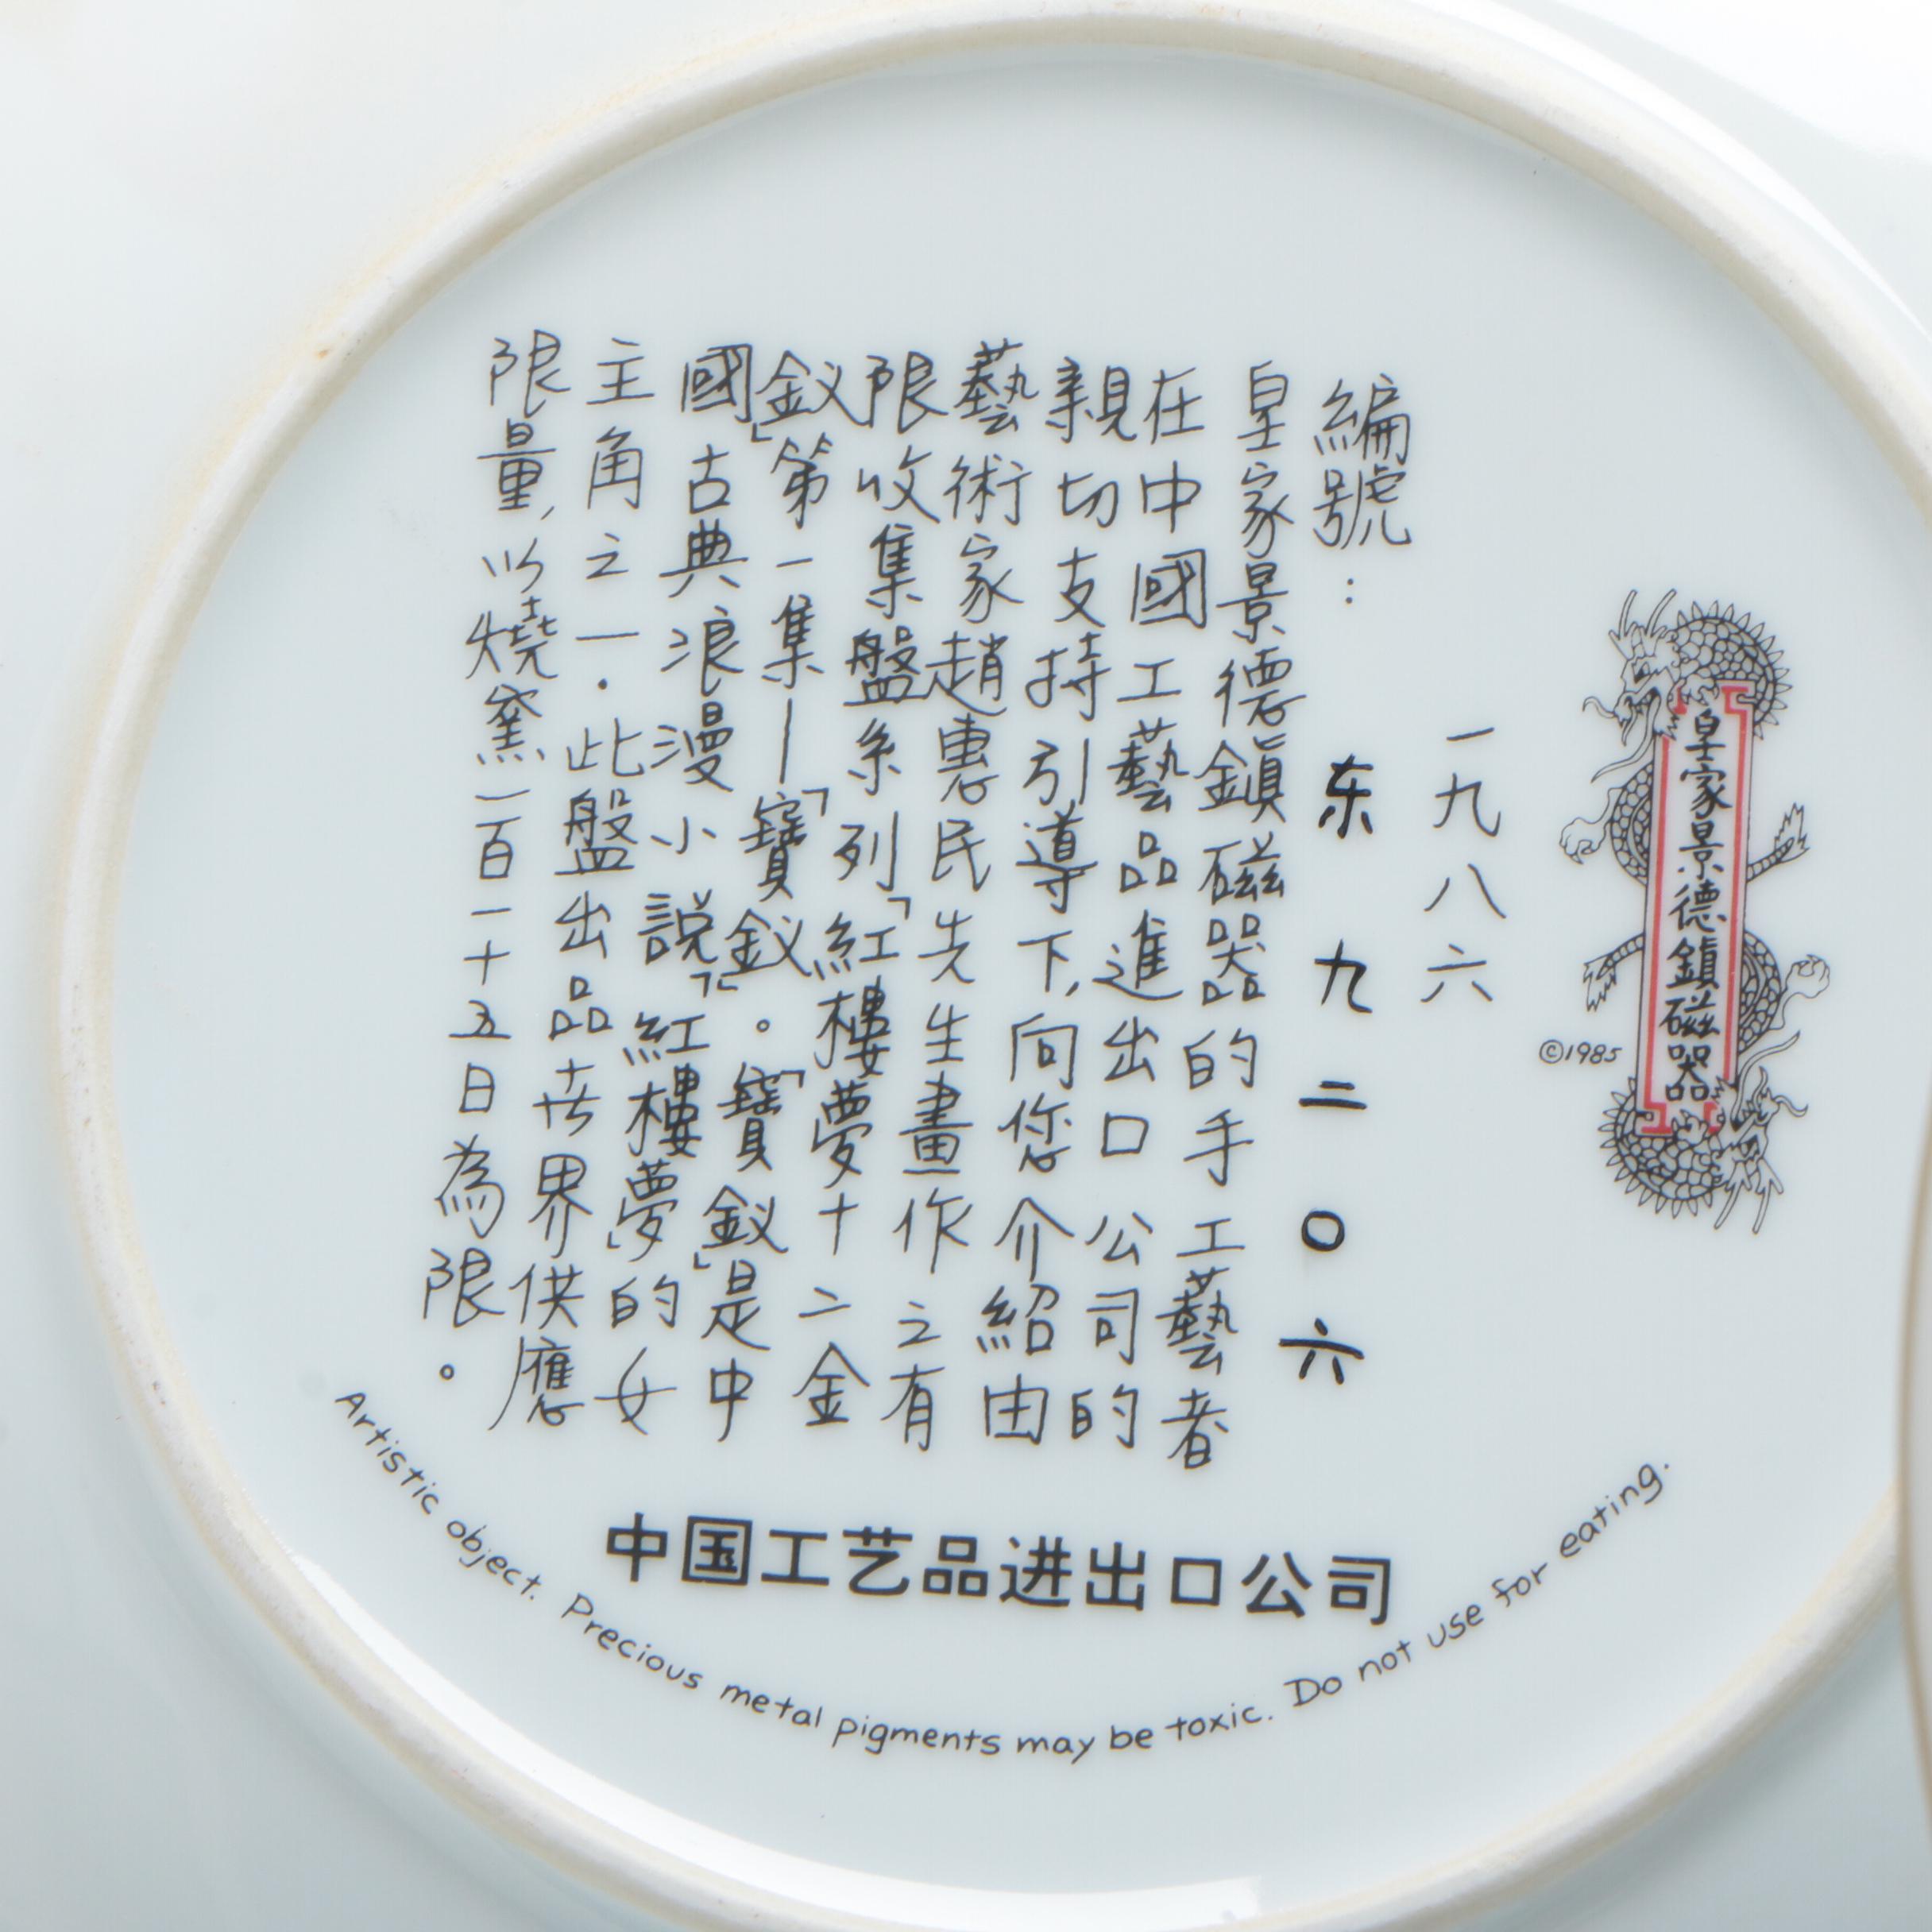 皇家景德鎮磁器
©1985
一九八六
編號：东九二〇六
皇家景德鎮磁器的手工藝者
在中國工藝品進出口公司的
親切支持引導下,向您介紹由
藝術家趙惠民先生畫作之有
限收集盤系列「紅樓夢十二金
釵」第一集—「寶釵」。「寶釵」是中
國古典浪漫小説「紅樓夢」的女
主角之一.此盤出品卋界供應
限量,以燒窯一百一十五日為限。
中国工艺品进出口公司
Artistic object. Precious metal pigments may be toxic. Do not use for eating.